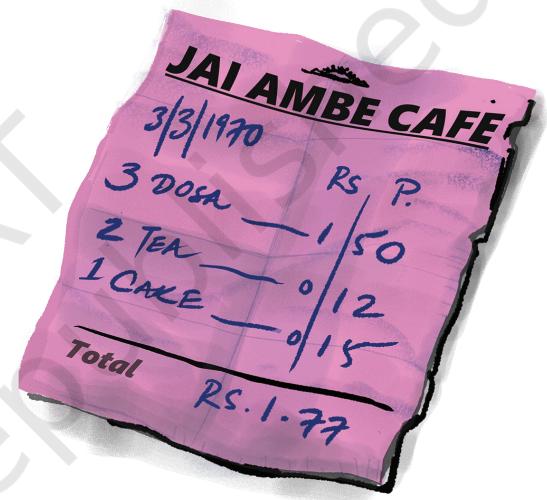 JAI AMBE CAFE
3/3/1970
Rs P.
3 DOSA — 1/50
2 TEA — 0/12
1 CAKE — 0/15
Total
RS. 1.77